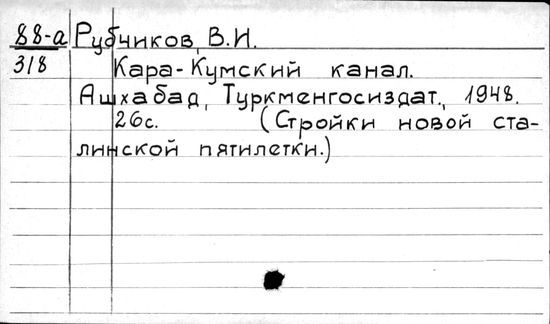 88-а Рубчиков, В.И.
318 Кара-Кумский канал.
Ашхабад, Туркменгосиздат., 1948.
26с. (Стройки новой ста-
линской пятилетки.)